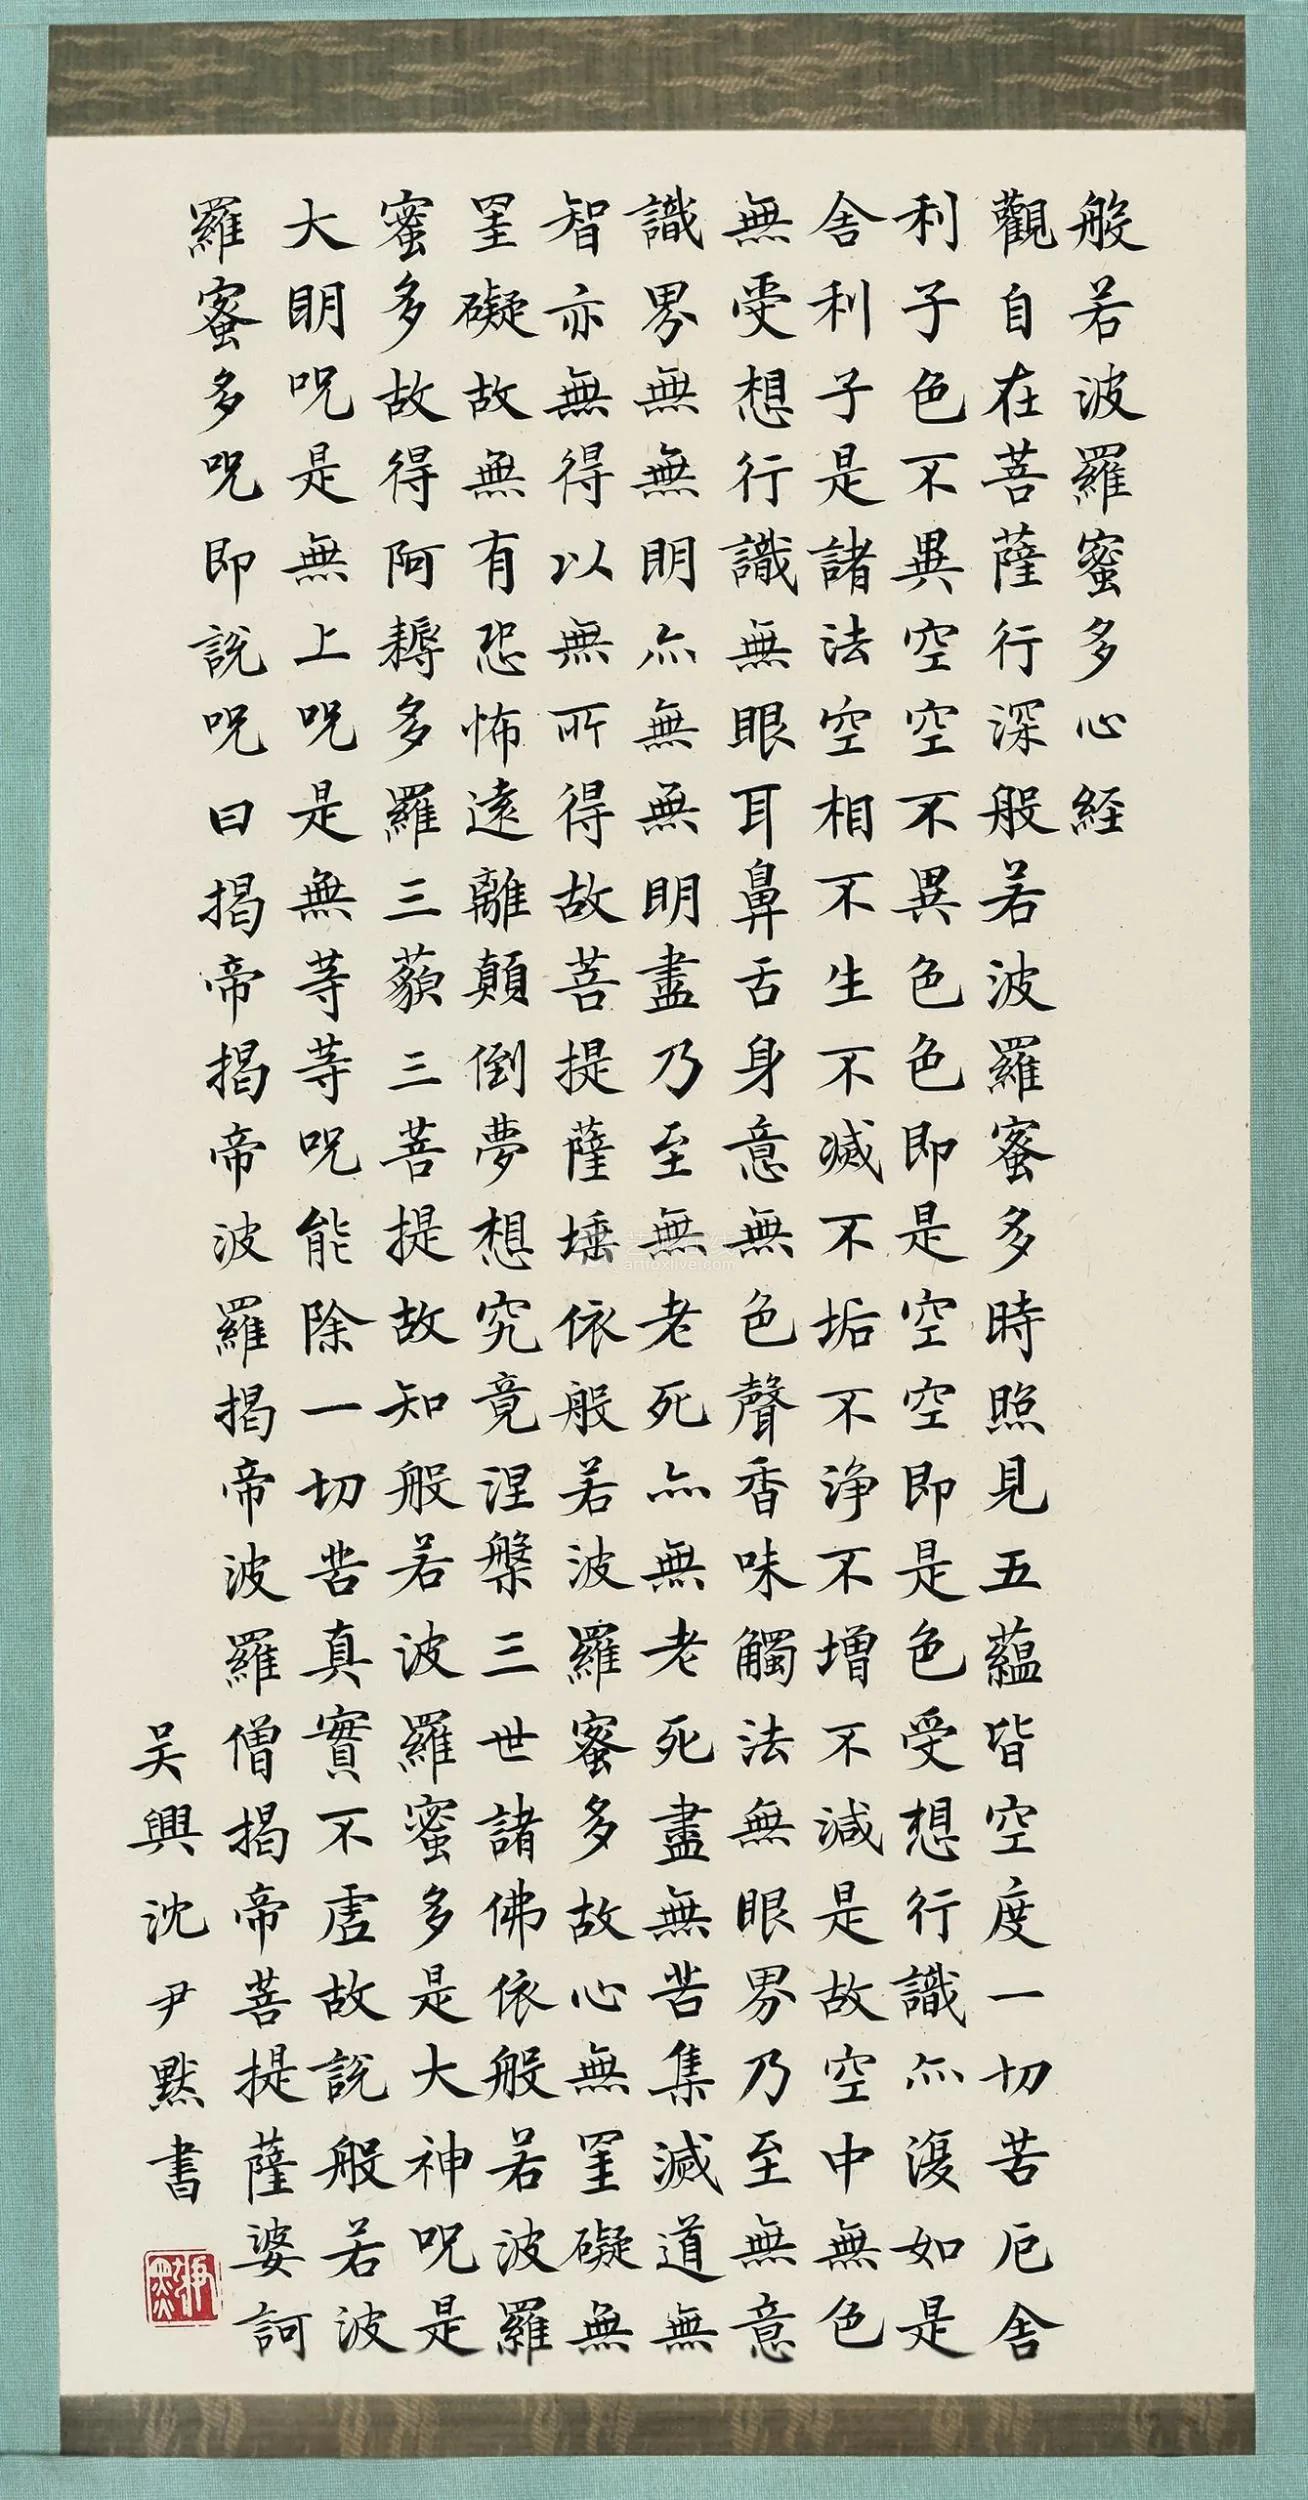 般若波羅蜜多心経
觀自在菩薩行深般若波羅蜜多時照見五蘊皆空度一切苦厄舍
利子色不異空空不異色色即是空空即是色受想行識亦復如是
舍利子是諸法空相不生不滅不垢不淨不增不減是故空中無色
無受想行識無眼耳鼻舌身意無色聲香味觸法無眼界乃至無意
識界無無明亦無無明盡乃至無老死亦無老死盡無苦集滅道無
智亦無得以無所得故菩提薩埵依般若波羅蜜多故心無罣礙無
罣礙故無有恐怖遠離顛倒夢想究竟涅槃三世諸佛依般若波羅
蜜多故得阿耨多羅三藐三菩提故知般若波羅蜜多是大神呪是
大明呪是無上呪是無等等呪能除一切苦真實不虛故說般若波
羅蜜多呪即說呪曰揭帝揭帝波羅揭帝波羅僧揭帝菩提薩婆訶
吴興沈尹默書
artfoxlive.com